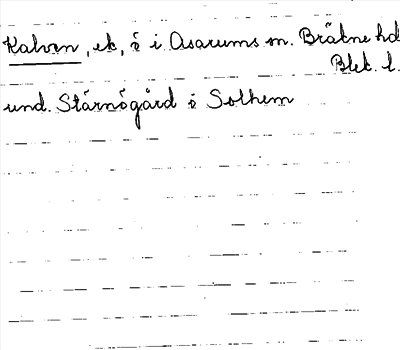 Kalven, ek, ö i Asarums sn. Bräkne hd
Blek. l.
und. Stärnögård i Solhem